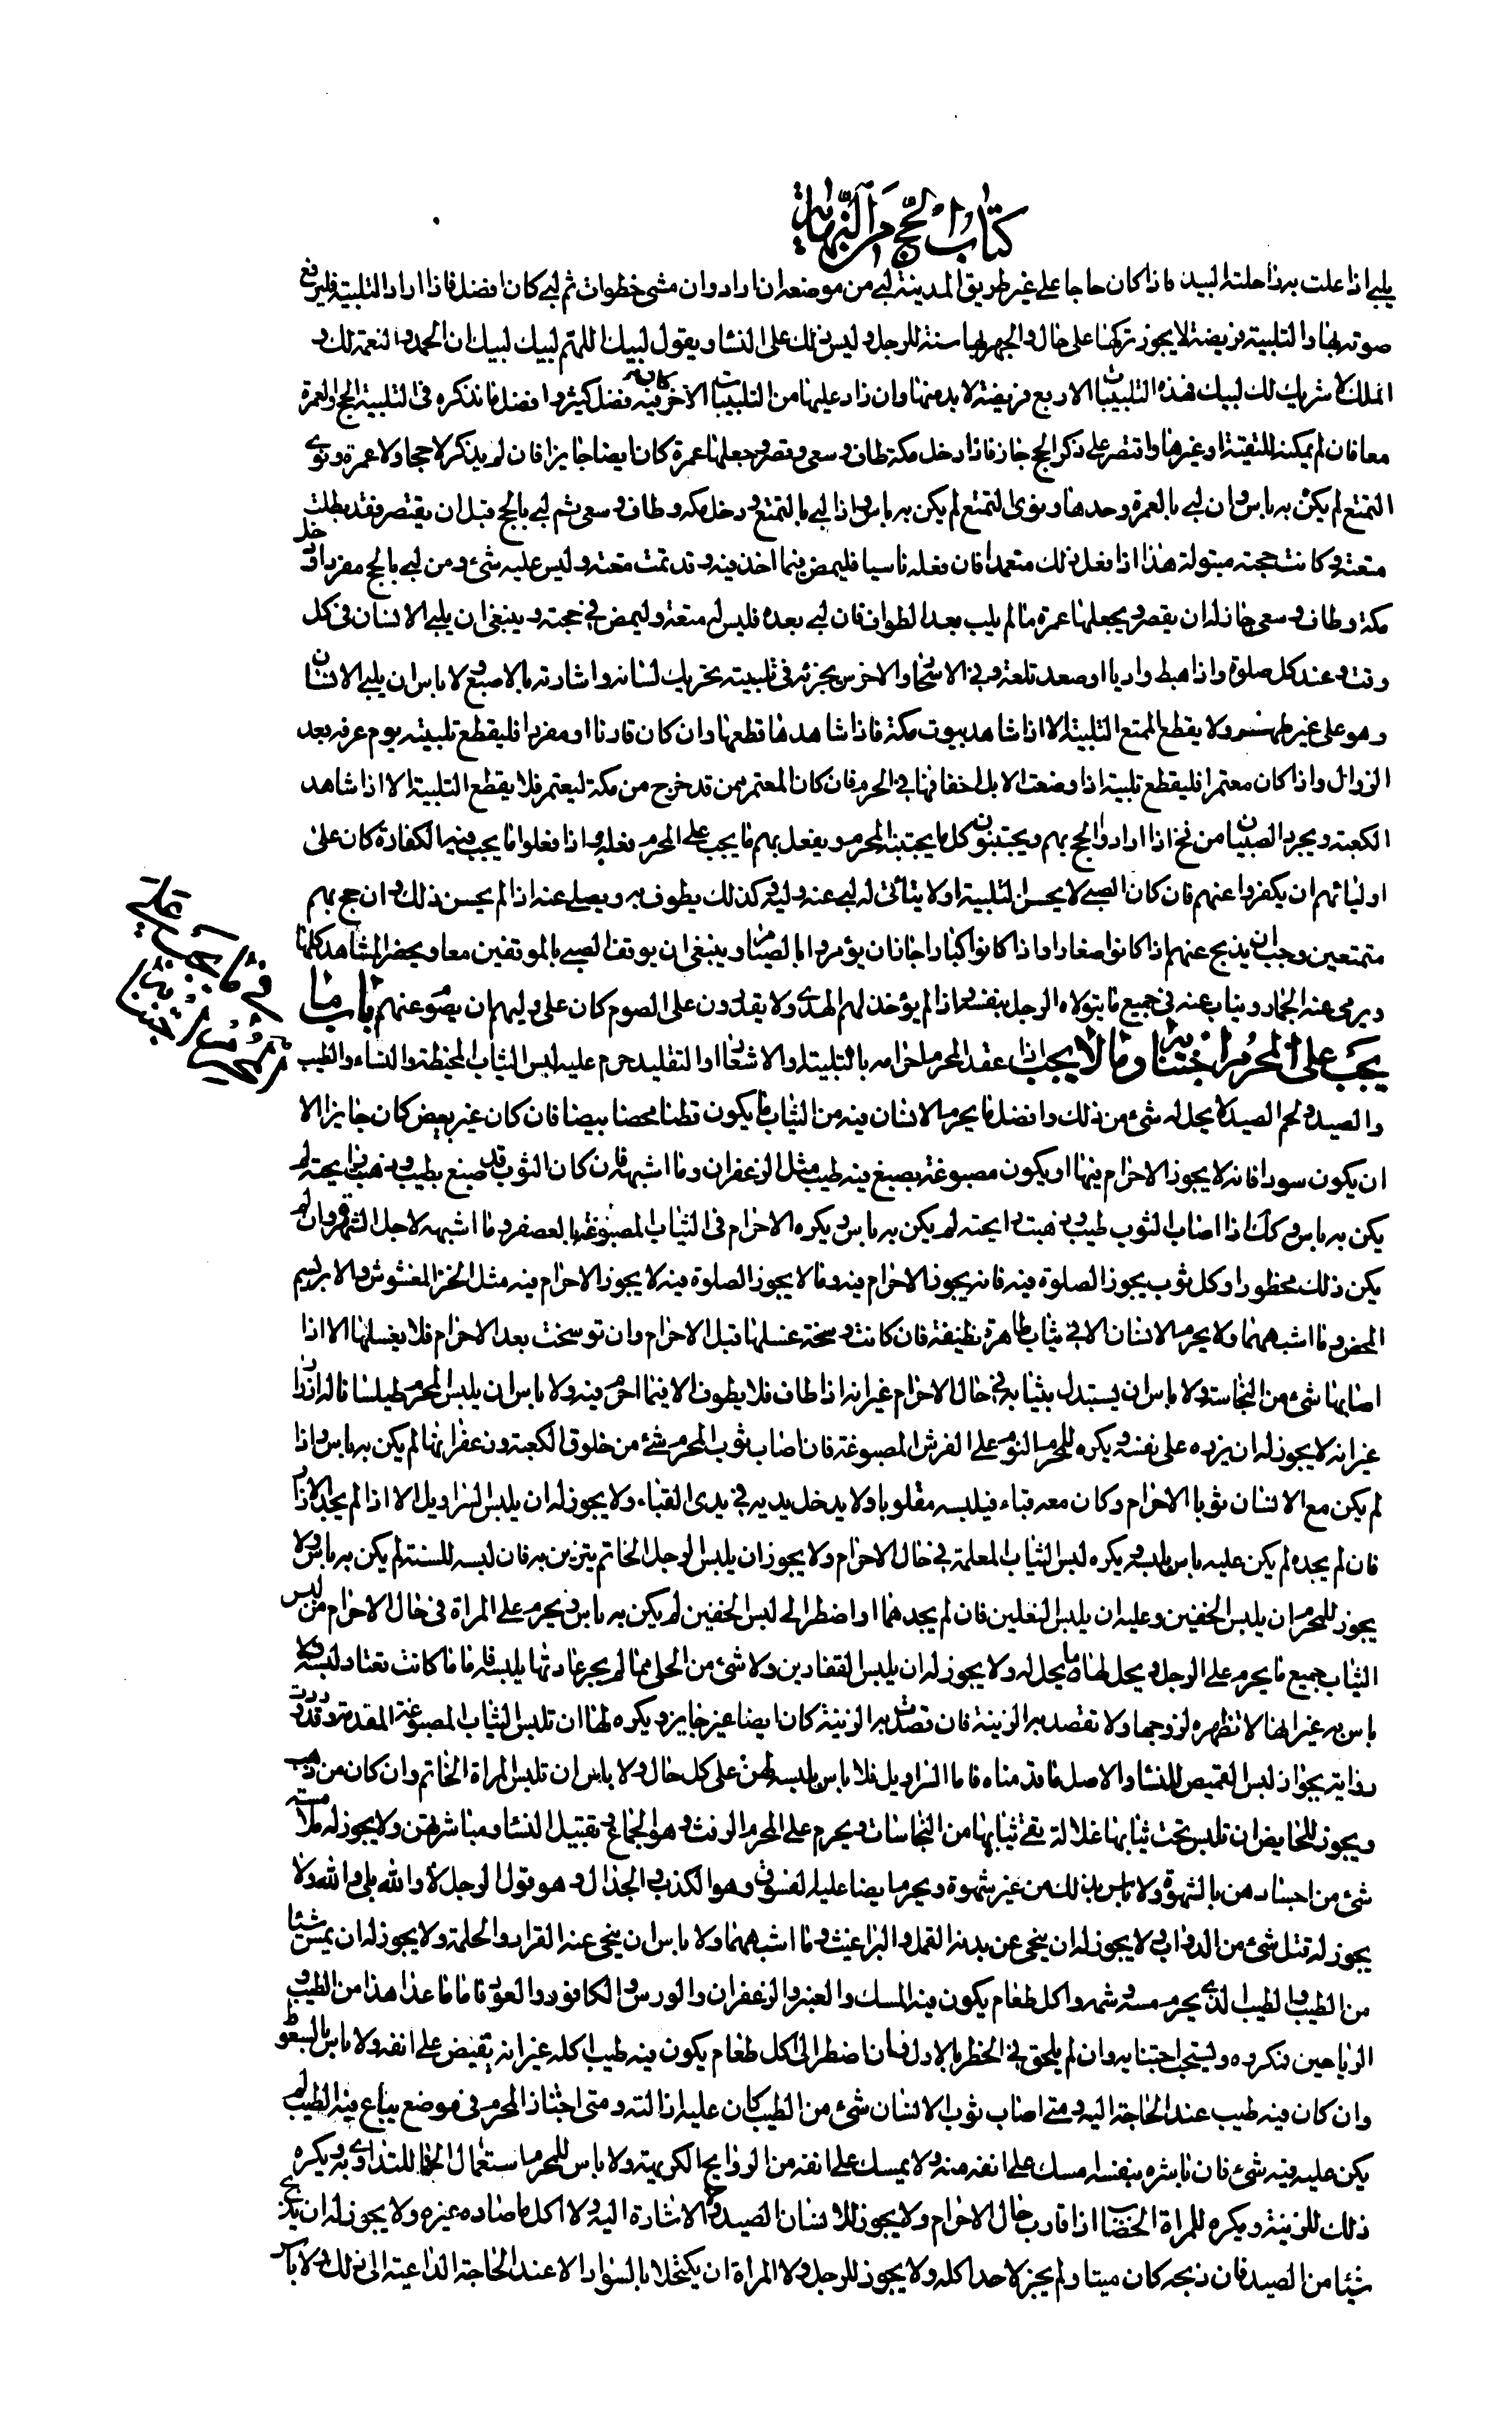 كتاب الحج من النهاية
يلبى اذا علت به راحلته البيداء فاذا كان حاجا على غير طريق المدينة لبى من موضعه ان اراد وان مشى خطوات ثم لبى كان افضل فاذا اراد التلبية فليرفع
صوته بها والتلبية فريضة لا يجوز تركها على حال والجهر بها سنة للرجل وليس ذلك على النساء ويقول لبيك اللهم لبيك لبيك ان الحمد والنعمة لك و
الملك لا شريك لك لبيك فهذه التلبيات الاربع فريضة لا بد منها وان زاد عليها من التلبيات الاخر كان فيه فضل كثير وافضل ما نذكره فى التلبية الحج والعمرة
معا فان لم يمكنه للتقية او غيرها واقتصر على ذكر الحج جاز فاذا دخل مكة طاف وسعى وقصر وجعلها عمرة كان ايضا جايزا فان لم يذكر لا حجا ولا عمرة ونوى
التمتع لم يكن به باس وان لبى بالعمرة وحدها ونوى التمتع لم يكن به باس واذا لبى بالتمتع ودخل مكه وطاف وسعى ثم لبى بالحج قبل ان يقتصر فقد بطلت
متعته وكانت حجته مبتولة هذا اذا فعل ذلك متعمدا فان فعله ناسيا فليمض فيما اخذ فيه وقد تمت متعته وليس عليه شئ ومن لبى بالحج مفردا ودخل
مكة وطاف وسعى جاز له ان يقصر ويجعلها عمرة ما لم يلب بعد الطواف فان لبى بعده فليس له متعة وليمض فى حجته وينبغى ان يلبى الانسان فى كل
وقت وعند كل صلوة واذا هبط واديا او صعد تلعة وفى الاسحار والاخرس يجزئه فى تلبيته تحريك لسانه واشارته بالاصبع ولا باس ان يلبى الانسان
وهو على غير طهر ولا يقطع المتمتع التلبية الا اذا شاهد بيوت مكة فاذا شاهدها قطعها وان كان قارنا او مفردا فليقطع تلبيته يوم عرفه بعد
الزوال واذا كان معتمرا فليقطع تلبيته اذا وضعت الابل اخفافها فى الحرم فان كان المعتمر ممن قد خرج من مكة ليعتمر فلا يقطع التلبية الا اذا شاهد
الكعبة ويجرد الصبيان من فخ اذا ارادوا الحج بهم ويجتبنون كل ما يجتنبه المحرم ويفعل بهم ما يجب على المحرم فعله واذا فعلوا ما يجب فيه الكفارة كان على
اوليائهم ان يكفروا عنهم فان كان الصبى لا يحسن التلبية او لا يتاتى له لبى عنه وليه وكذلك يطوف به ويصلى عنه اذا لم يحسن ذلك وان حج بهم
متمتعين وجب ان يذبح عنهم اذا كانوا صغارا واذا كانوا كبارا جاز ان يؤمروا بالصيام وينبغى ان يوقف الصبى بالموقفين معا ويحضر المشاهد كلها
ويرمى عنه الجمار ويناب عنه فى جميع ما يتولاه الرجل بنفسه اذا لم يؤخذ لهم الهدى ولا يقدرون على الصوم كان على وليهم ان يصوم عنهم باب ما
يجب على المحرم اجتنابه وما لا يجب اذا عقد المحرم احرامه بالتلبية او الاشعار او التقليد حرم عليه لبس الثياب المخيطة والنساء والطيب
والصيد ولحم الصيد لا يحل له شئ من ذلك وافضل ما يحرم الانسان فيه من الثياب ما يكون قطنا محضا بيضا فان كان غير بيض كان جايزا الا
ان يكون سودا فانه لا يجوز الاحرام فيها او يكون مصبوغة بصبغ فيه طيب مثل الزعفران وما اشبهه فان كان الثوب قد صبغ بطيب وذهب رايحته لم
يكن به باس وكك اذا اصاب الثوب طيب وذهبت رايحته لم يكن به باس ويكره الاحرام فى الثياب المصبوغة بالعصفر وما اشبهه لاجل الشهرة وان لم
يكن ذلك محظورا وكل ثوب يجوز الصلوة فيه فانه يجوز الاحرام فيه وما لا يجوز الصلوة فيه لا يجوز الاحرام فيه مثل الخز المغشوش والابريسم
المحض وما اشبههما ولا يحرم الانسان الا فى ثياب طاهرة نظيفة فان كانت وسخة غسلها قبل الاحرام وان توسخت بعد الاحرام فلا يغسلها الا اذا
اصابها شئ من النجاسة ولا باس ان يستبدل بثيابه فى حال الاحرام غير انه اذا طاف فلا يطوف الا فيما احرم فيه ولا باس ان يلبس المحرم طيلسانا له ازرار
غير انه لا يجوز له ان يزره على نفسه ويكره للمحرم النوم على الفرش المصبوغة فان اصاب ثوب المحرم شئ من خلوق الكعبة وزعفرانها لم يكن به باس واذا
لم يكن مع الانسان ثوبا الاحرام وكان معه قباء فيلبسه مقلوبا ولا يدخل يديه فى يدى القباء ولا يجوز له ان يلبس السراويل الا اذا لم يجد الازار
فان لم يجده لم يكن عليه باس بلبسه ويكره لبس الثياب المعلمة فى حال الاحرام ولا يجوز ان يلبس الرجل الخاتم يتزين به فان لبسه للسنة لم يكن به باس ولا
يجوز للمحرم ان يلبس الخفين وعليه ان يلبس النعلين فان لم يجدهما او اضطر الى لبس الخفين لم يكن به باس ويحرم على المراة فى حال الاحرام من لبس
الثياب جميع ما يحرم على الرجل ويحل لها ما يحل له ولا يجوز له ان يلبس القفازين ولا شئ من الحلى مما لم يجر عادتها بلبسه فاما ما كانت تعتاد لبسه فلا
باس به غير انها لا تظهره لزوجها ولا تقصد به الزينة فان قصدت به الزينة كان ايضا غير جايز ويكره لها ان تلبس الثياب المصبوغة المفدمة وقد وردت
رواية بجواز لبس القميص للنساء والاصل ما قدمناه فاما السراويل فلا باس بلبسه لهن على كل حال ولا باس ان تلبس المراة الخاتم وان كان من ذهب
ويجوز للحايض ان تلبس تحت ثيابها غلالة تقى ثيابها من النجاسات ويحرم على المحرم الرفث وهو الجماع وتقبيل النساء ومباشرتهن ولا يجوز له ملامسة
شئ من اجسادهن بالشهوة ولا باس بذلك من غير شهوة ويحرم ايضا عليه الفسوق وهو الكذب والجدال وهو قول الرجل لا والله بلى والله ولا
يجوز له قتل شئ من الدواب ولا يجوز له ان ينحى عن بدنه القمل والبراغيث وما اشبههما ولا باس ان ينحى عنه القراد والحلمة ولا يجوز له ان يمس شيئا
من الطيب والطيب الذى يحرم مسه وشمه واكل طعام يكون فيه المسك والعنبر والزعفران والورس والكافور والعود فاما ما عدا هذا من الطيب و
الرياحين فمكروه ويستحب اجتنابه وان لم يلحق فى الحظر بالاول فان اضطر الى اكل طعام يكون فيه طيب اكله غير انه يقبض على انفه ولا باس بالسعوط
وان كان فيه طيب عند الحاجة اليه ومتى اصاب ثوب الانسان شئ من الطيب كان عليه ازالته ومتى اجتاز المحرم فى موضع يباع فيه الطيب لم
يكن عليه فيه شئ فان باشره بنفسه امسك على انفه منه ولا يمسك على انفه من الروايح الكريهة ولا باس للمحرم استعمال الحناء للتداوى به ويكره
ذلك للزينة ويكره للمراة الخضاب اذا قارب حال الاحرام ولا يجوز للانسان الصيد ولا الاشارة اليه ولا اكل ما صاده غيره ولا يجوز له ان يذبح
شيئا من الصيد فان ذبحه كان ميتا ولم يجز لاحد اكله ولا يجوز للرجل ولا المراة ان يكتحلا بالسواد الا عند الحاجة الداعية الى ذلك ولا باس
فى ما يجب على
المحرم اجتنابه